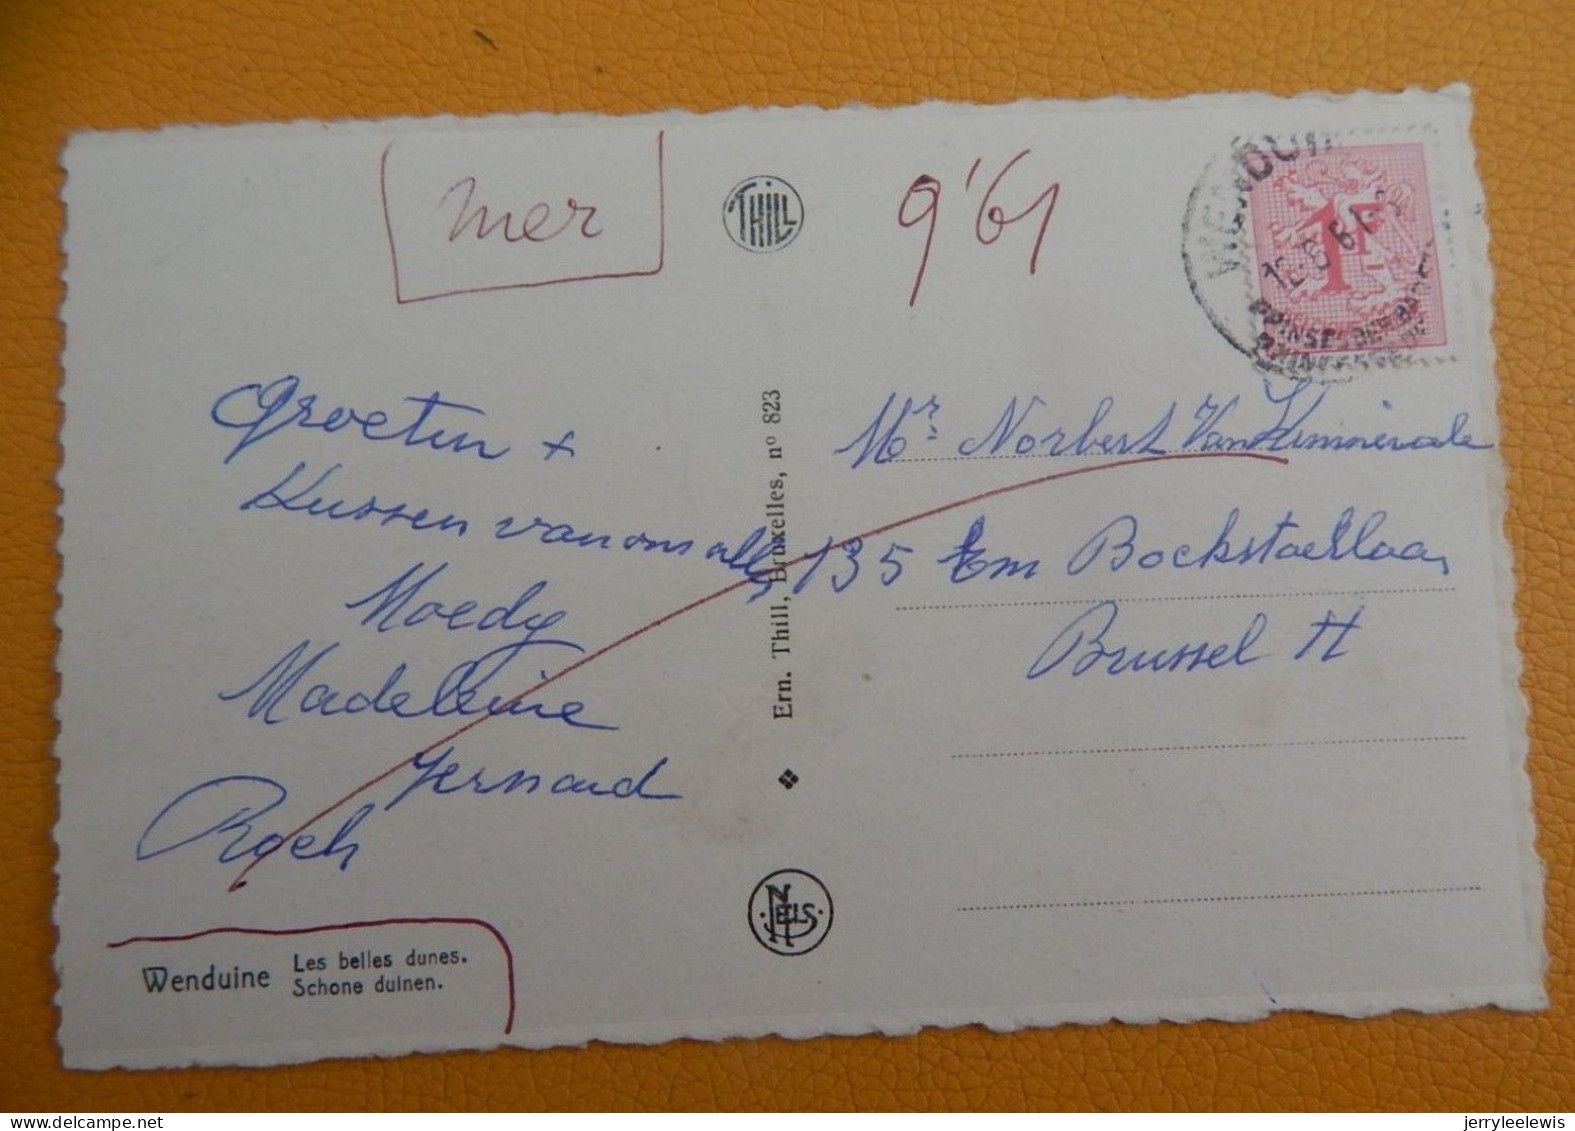 mer
THILL
9'61
12-8-61
1F
Groeten +
Kussen van ons alle,
Moedy
Madeleine
Fernand
Roch
Ern. Thill, Bruxelles, nº 823
NELS
Mr. Norbert Van
135 Em Bockstaellaan
Brussel II
Wenduine
Les belles dunes.
Schone duinen.
delcampe.net
jerryleelewis